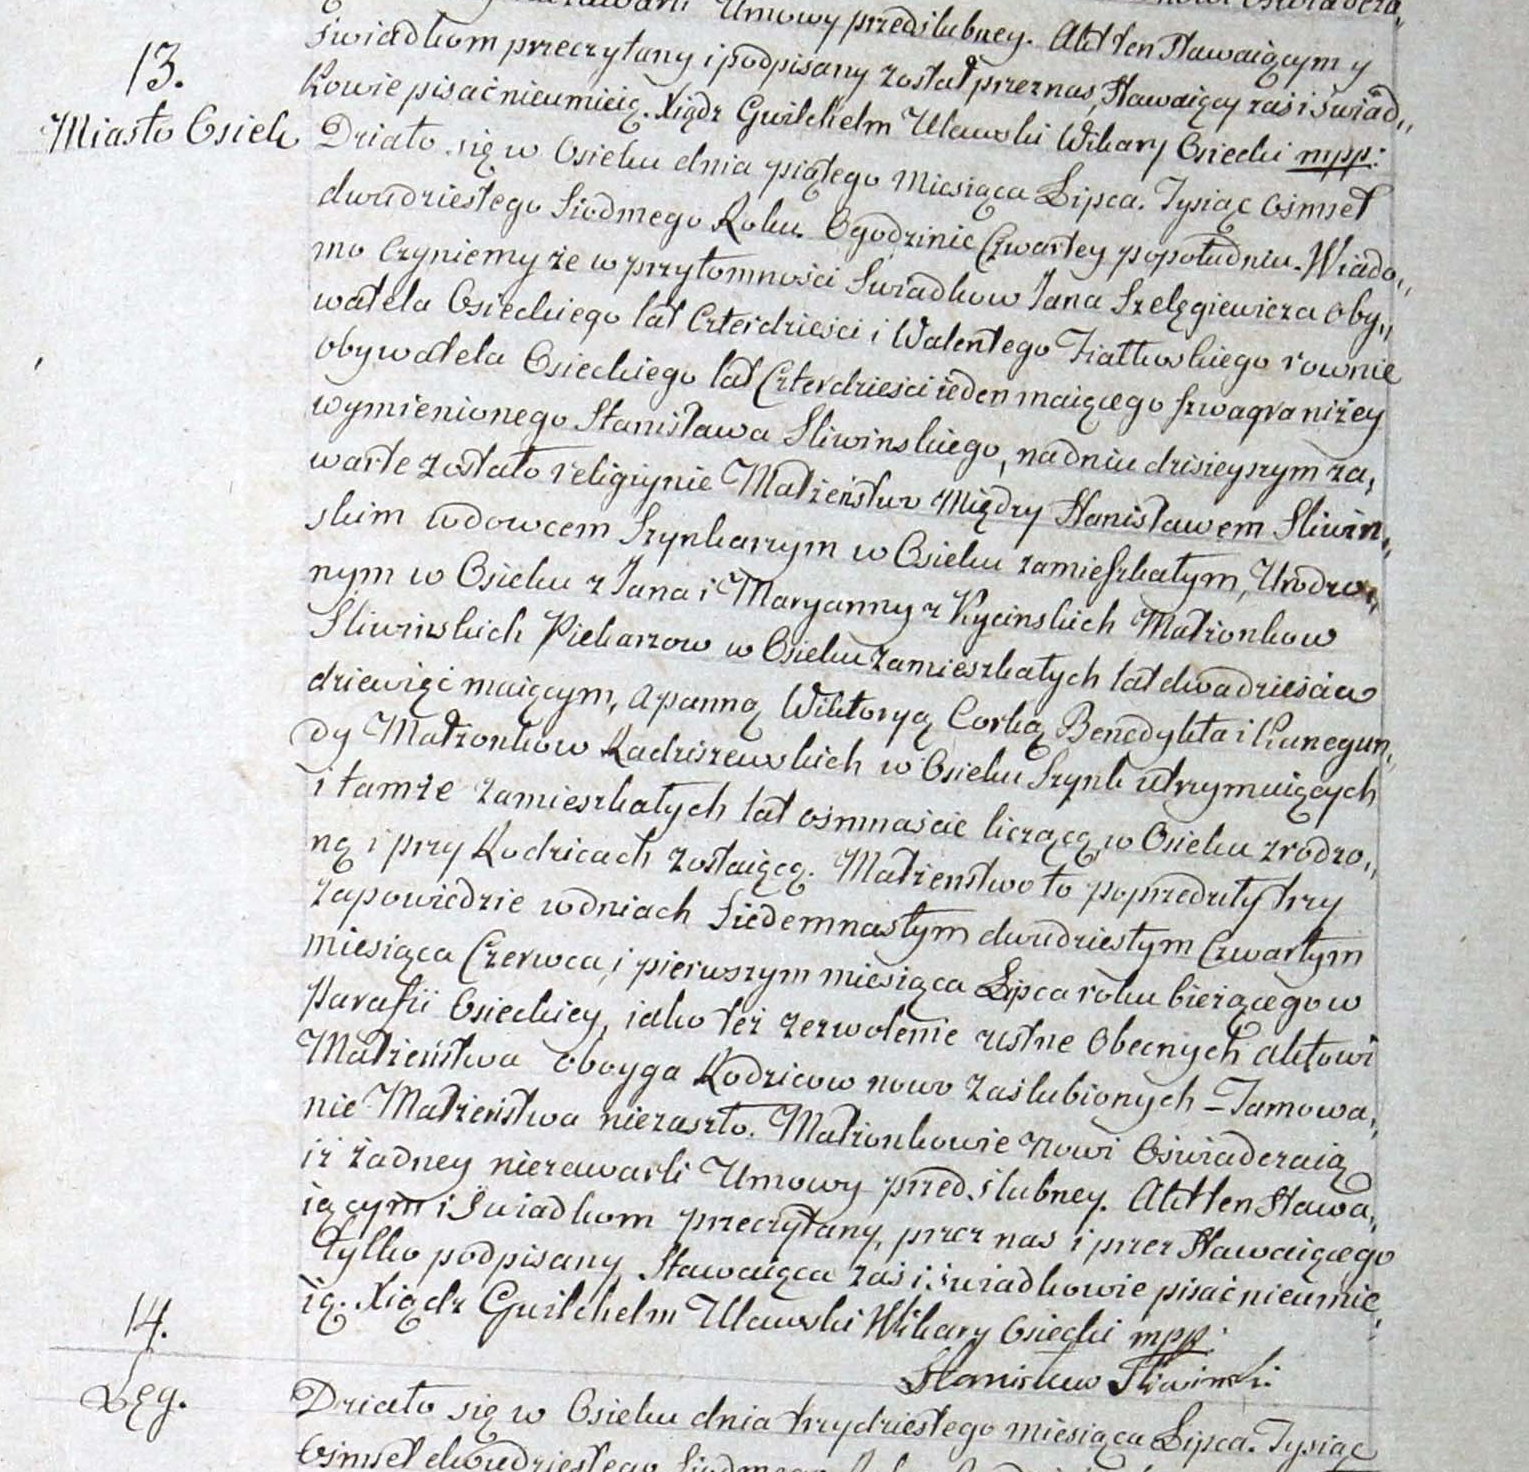 Umowy przedslubney. Akt ten Stawaiącym y
swiadkom przeczytany i podpisany został przez nas, Stawaiący zaś i Swiad„
kowie pisać nieumieią. Xiądz Guilchelm Ulawski Wikary Osiecki mpp:
13.
Miasto Osiek
Działo się w Osieku dnia piątego Miesiąca Lipca. Tysiąc Ośmset
dwudziestego Siodmego Roku. O godzinie Czwartey popołudniu. Wiado„
mo Czyniemy że w przytomności Swiadkow Jana Szelęgiewicza oby„
watela Osieckiego lat Czterdzieści i Walentego Fiałkowskiego rownie
obywatela Osieckiego lat Czterdzieści ieden maiącego szwagra niżey
wymienionego Stanisława Sliwinskiego, na dniu dzisieyszym za„
warte zostało religiynie Małżeństwo Między Stanisławem Sliwin„
skim wdowcem Szynkarzym w Osieku zamieszkałym, Urodzo„
nym w Osieku z Jana i Maryanny z Kycinskich Małżonkow
Sliwinskich Piekarzow w Osieku zamieszkałych lat dwadzieścia
dziewięć maiącym, a panną Wiktoryą Corką Benedykta i Kunegun„
dy Małżonkow Radziszewskich w Osieku Szynk utrzymuiących
i tamże zamieszkałych lat ośmnaście liczącą, w Osieku zrodzo„
ną i przy Rodzicach zostaiącą. Małżenstwo to poprzedziły trzy
zapowiedzie w dniach Siedemnastym dwudziestym Czwartym
miesiąca Czerwca, i pierwszym miesiąca Lipca roku bieżącego w
Parafii Osieckiey, iako też zezwolenie ustne Obecnych aktowi
Małżeństwa oboyga Rodzicow nowo Zaślubionych – Tamowa„
nie Małżeństwa niezaszło. Małżonkowie nowi Oświadczaią
iż żadney niezawarli Umowy przed slubney. Akt ten Stawa„
iącym i Swiadkom przeczytany, przez nas i przez Stawaiącego
tylko podpisany, Stawaiąca zaś i swiadkowie pisać nieumie„
ią. Xiądz Guilchelm Ulawski Wikary Osiecki mpp:
Stanisław Sliwinski
14.
Łęg.
Działo się w Osieku dnia trzydziestego miesiąca Lipca. Tysiąc
Ośmset dwudziestego Siodmego